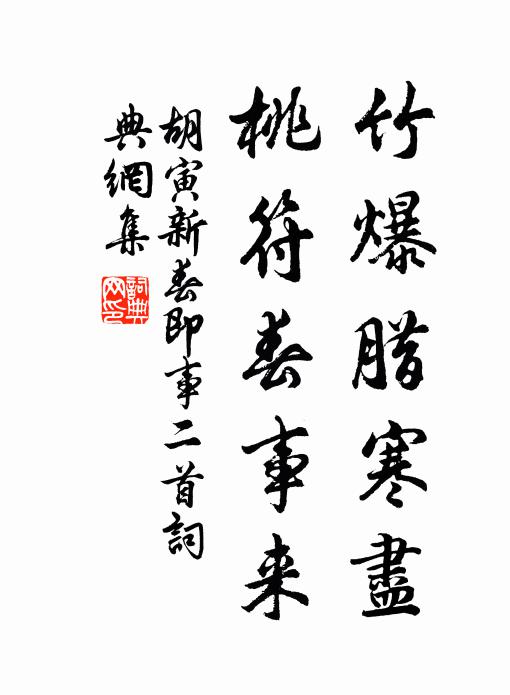 竹爆腊寒盡
桃符春事来
胡寅新春即事二首詞
典網集
詞典网印